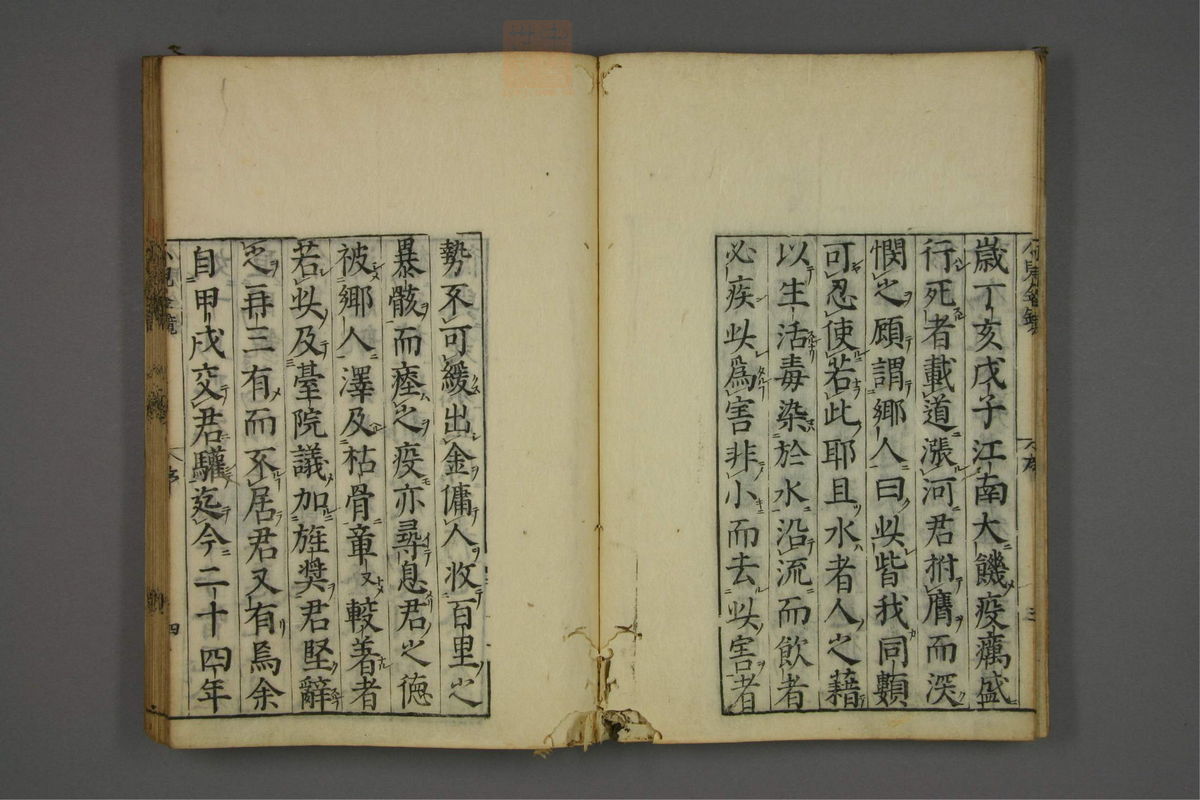 歳丁亥戊子江南大饑疫癘盛
行死者載道漲河君拊膺而深
憫之顧謂鄉人曰此皆我同類
可忍使若此耶且水者人之藉
以生活毒染於水沿流而飲者
必疾此為害非小而去此害者
序
三
勢不可緩出金傭人收百里之
暴骸而瘞之疫亦尋息君之德
被鄉人澤及枯骨章又較著者
若此及臺院議加旌奨君堅辭
之再三有而不居君又有焉余
自甲戌交君驩迄今二十四年
序
四